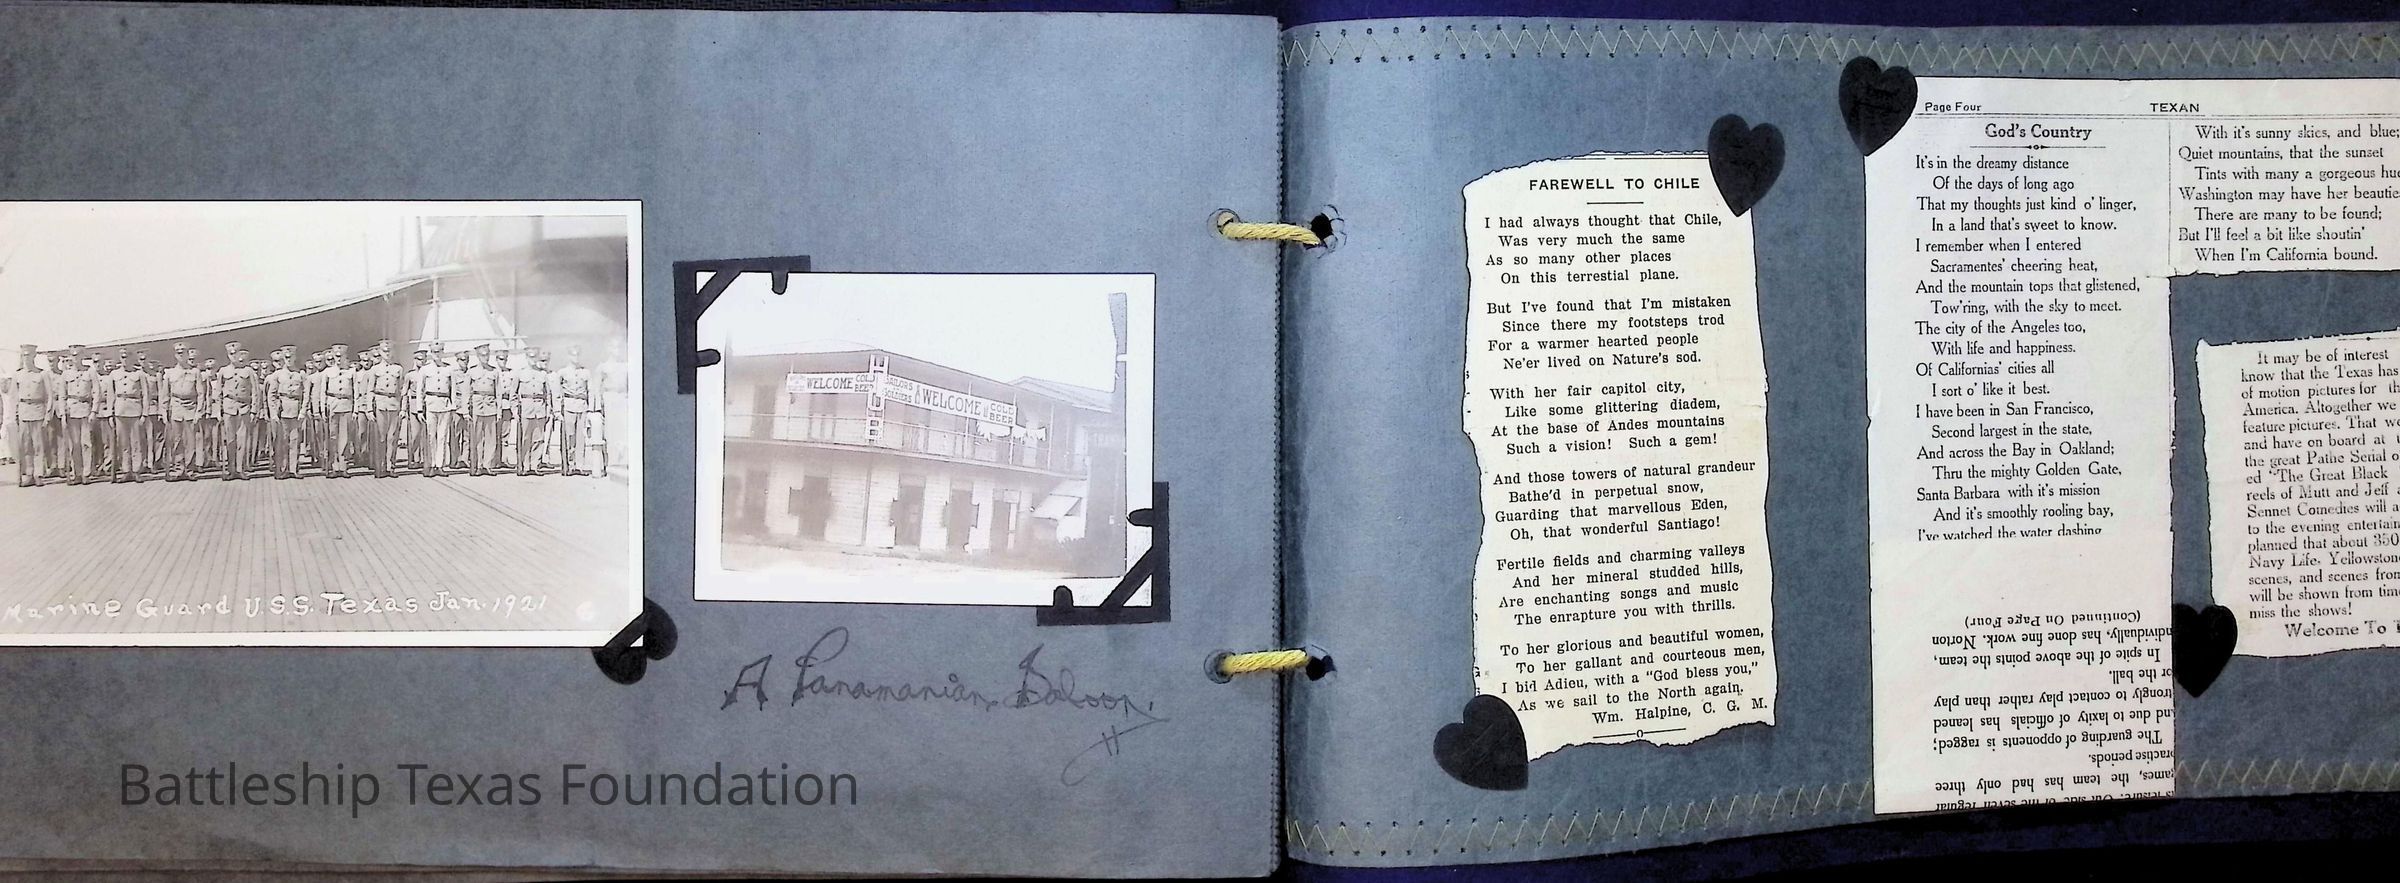 Marine Guard U.S.S. Texas Jan. 1921
WELCOME COLD BEER
SAILORS & SOLDIERS
WELCOME
COLD BEER
A Panamanian Saloon.
Battleship Texas Foundation
FAREWELL TO CHILE
I had always thought that Chile,
Was very much the same
As so many other places
On this terrestial plane.
But I've found that I'm mistaken
Since there my footsteps trod
For a warmer hearted people
Ne'er lived on Nature's sod.
With her fair capitol city,
Like some glittering diadem,
At the base of Andes mountains
Such a vision! Such a gem!
And those towers of natural grandeur
Bathe'd in perpetual snow,
Guarding that marvellous Eden,
Oh, that wonderful Santiago!
Fertile fields and charming valleys
And her mineral studded hills,
Are enchanting songs and music
The enrapture you with thrills.
To her glorious and beautiful women,
To her gallant and courteous men,
I bid Adieu, with a "God bless you,"
As we sail to the North again.
Wm. Halpine, C. G. M.
Page Four
TEXAN
God's Country
It's in the dreamy distance
Of the days of long ago
That my thoughts just kind o' linger,
In a land that's sweet to know.
I remember when I entered
Sacramentes' cheering heat,
And the mountain tops that glistened,
Tow'ring, with the sky to meet.
The city of the Angeles too,
With life and happiness.
Of Californias' cities all
I sort o' like it best.
I have been in San Francisco,
Second largest in the state,
And across the Bay in Oakland;
Thru the mighty Golden Gate,
Santa Barbara with it's mission
And it's smoothly rooling bay,
I've watched the water dashing
With it's sunny skies, and blue;
Quiet mountains, that the sunset
Tints with many a gorgeous hue
Washington may have her beauties
There are many to be found;
But I'll feel a bit like shoutin'
When I'm California bound.
games, the team has had only three
practise periods.
The guarding of opponents is ragged;
and due to laxity of officials has leaned
trongly to contact play rather than play
or the ball.
In spite of the above points the team,
individually, has done fine work. Norton
(Continued On Page Four)
It may be of interest
know that the Texas has
of motion pictures for th
America. Altogether we
feature pictures. That we
and have on board at
the great Pathe Serial o
ed "The Great Black
reels of Mutt and Jeff a
Sennet Comedies will a
to the evening entertain
planned that about 350
Navy Life, Yellowstone
scenes, and scenes from
will be shown from time
miss the shows!
Welcome To